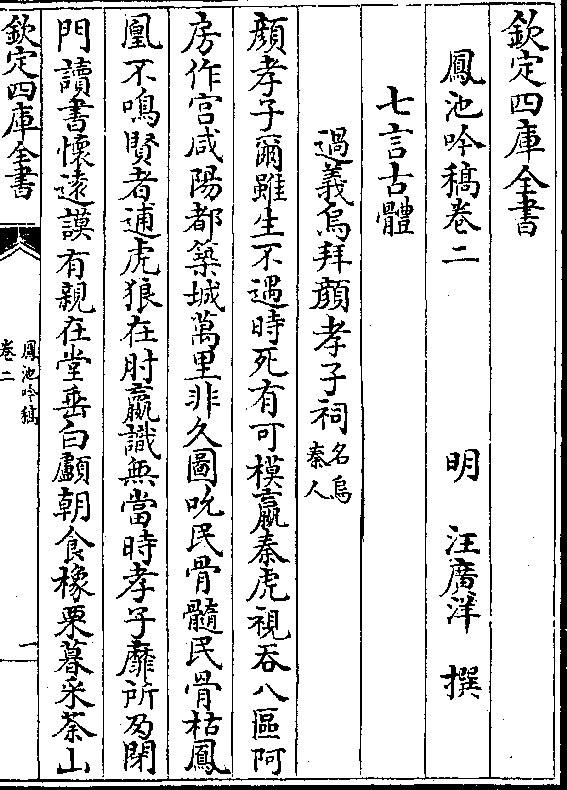 欽定四庫全書
鳳池吟稿卷二
明 汪廣洋 撰
七言古體
過義烏拜顔孝子祠名烏秦人
顔孝子爾雖生不遇時死有可模嬴秦虎視吞八區阿
房作宫咸陽都築城萬里非久圖吮民骨髓民骨枯鳳
凰不鳴賢者逋虎狼在肘嬴識無當時孝子靡所為閉
門讀書懷遠謨有親在堂垂白顱朝食橡栗暮采荼山
欽定四庫全書
鳳池吟稿
卷二
一